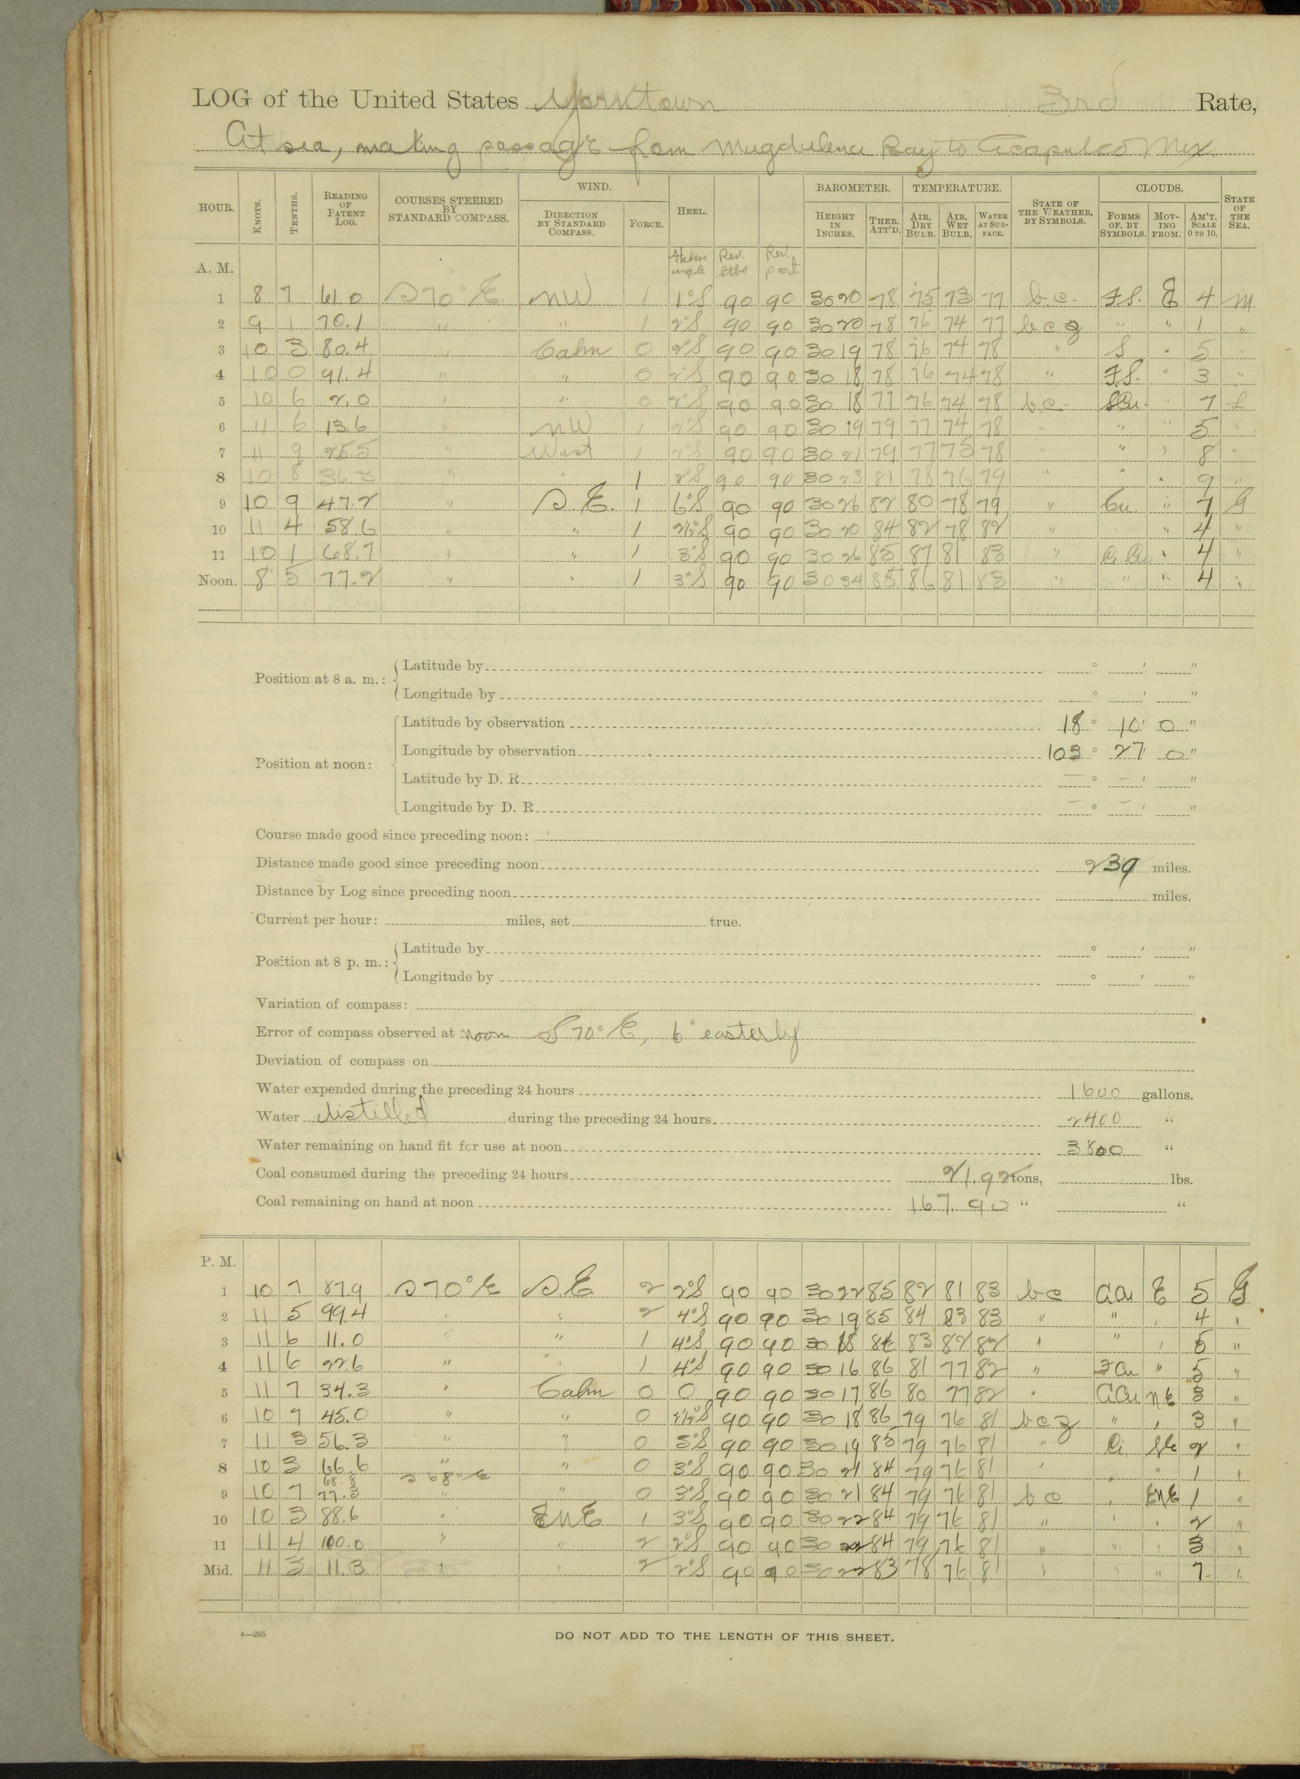 LOG of the United States Yorktown 3rd Rate,
At sea, making passage from Magdalena Bay to Acapulco Mex
HOUR. KNOTS. TENTHS. READING OF PATENT LOG. COURSES STEERED BY STANDARD COMPASS. WIND. DIRECTION BY STANDARD COMPASS. FORCE. HEEL. BAROMETER. HEIGHT IN INCHES. THER. ATT'D. TEMPERATURE. AIR, DRY BULB. AIR, WET BULB. WATER AT SURFACE. STATE OF THE WEATHER, BY SYMBOLS. CLOUDS. FORMS OF, BY SYMBOLS. MOVING FROM. AM'T. SCALE 0 TO 10. STATE OF THE SEA.
A. M. Rev. Stbd Rev. port
1 8 7 61.0 S 70° E NW 1 1°S 90 90 30 20 78 75 73 77 b.c. E 4 M
2 9 1 70.1 " " 1 2°S 90 90 30 20 78 76 74 77 b c " " 1 "
3 10 3 80.4 " Calm 0 2°S 90 90 30 19 78 76 74 78 " S " 5 "
4 10 0 91.4 " " 0 2°S 90 90 30 18 78 76 74 78 " " 3 "
5 10 6 2.0 " " 0 2°S 90 90 30 18 77 76 74 78 b c " 7
6 11 6 13.6 " NW 1 2°S 90 90 30 19 79 77 74 78 " " " 5 "
7 11 9 25.5 " West 1 2°S 90 90 30 21 79 77 75 78 " " " 8 "
8 10 8 36.3 " " 1 2°S 90 90 30 23 81 78 76 79 " " " 9 "
9 10 9 47.2 " S.E. 1 6°S 90 90 30 26 82 80 78 79 " Cu. " 7 G
10 11 4 58.6 " " 1 2½°S 90 90 30 20 84 82 78 82 " " " 4 "
11 10 1 68.7 " " 1 3°S 90 90 30 26 85 87 81 83 " Ci Cu " 4 "
Noon. 8 5 77.2 " " 1 3°S 90 90 30 24 85 86 81 83 " " " 4 "
Position at 8 a. m.: Latitude by ° ' "
Longitude by ° ' "
Position at noon: Latitude by observation 18° 10' 0"
Longitude by observation 103° 27' 0"
Latitude by D. R. — ° — ' "
Longitude by D. R. — ° — ' "
Course made good since preceding noon:
Distance made good since preceding noon 239 miles.
Distance by Log since preceding noon miles.
Current per hour: miles, set true.
Position at 8 p. m.: Latitude by ° ' "
Longitude by ° ' "
Variation of compass:
Error of compass observed at noon S 70° E, 6° easterly
Deviation of compass on
Water expended during the preceding 24 hours 1600 gallons.
Water distilled during the preceding 24 hours 2400 "
Water remaining on hand fit for use at noon 3800 "
Coal consumed during the preceding 24 hours 21.92 tons, lbs.
Coal remaining on hand at noon 167.90 " "
P. M.
1 10 7 87.9 S 70° E S.E 2 2°S 90 90 30 22 85 82 81 83 b c Ci Cu E 5 G
2 11 5 99.4 " " 2 4°S 90 90 30 19 85 84 83 83 " " " 4 "
3 11 6 11.0 " " 1 4°S 90 90 30 18 86 83 82 82 " " " 5 "
4 11 6 22.6 " " 1 4°S 90 90 30 16 86 81 77 82 " " 5 "
5 11 7 34.3 " Calm 0 0 90 90 30 17 86 80 77 82 " Ci Cu NE 3 "
6 10 7 45.0 " " 0 90 90 30 18 86 79 76 81 b c z " " 3 "
7 11 3 56.3 " " 0 3°S 90 90 30 19 85 79 76 81 " Ci 2 "
8 10 3 66.6 " " 0 3°S 90 90 30 21 84 79 76 81 " " " 1 "
68.8 S 68° E
9 10 7 77.3 " " 0 3°S 90 90 30 21 84 79 76 81 b c " ENE 1 "
10 10 3 88.6 " ENE 1 3°S 90 90 30 22 84 79 76 81 " " " 2 "
11 11 4 100.0 " " 2 2°S 90 90 30 22 84 79 76 81 " " " 3 "
Mid. 11 3 11.3 " 2 2°S 90 90 30 22 83 78 76 81 " " " 7 "
4—265
DO NOT ADD TO THE LENGTH OF THIS SHEET.